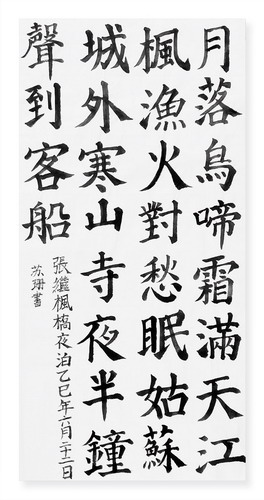 月落烏啼霜滿天江
楓漁火對愁眠姑蘇
城外寒山寺夜半鐘
聲到客船
張繼楓橋夜泊乙巳年六月二十二日
苏珊書